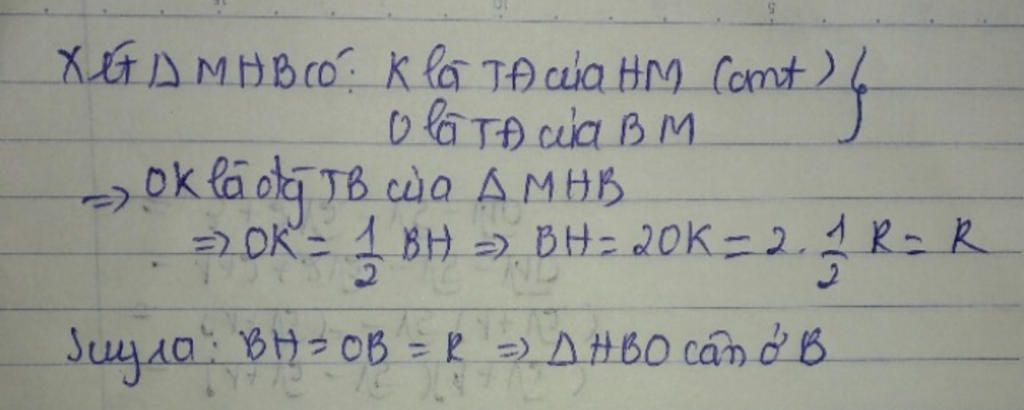 Xét Δ MHB có: K là TĐ của HM (cmt) }
O là TĐ của BM
=> OK là đg TB của Δ MHB
=> OK = 1/2 BH => BH = 2OK = 2. 1/2 R = R
Suy ra: BH = OB = R => Δ HBO cân ở B